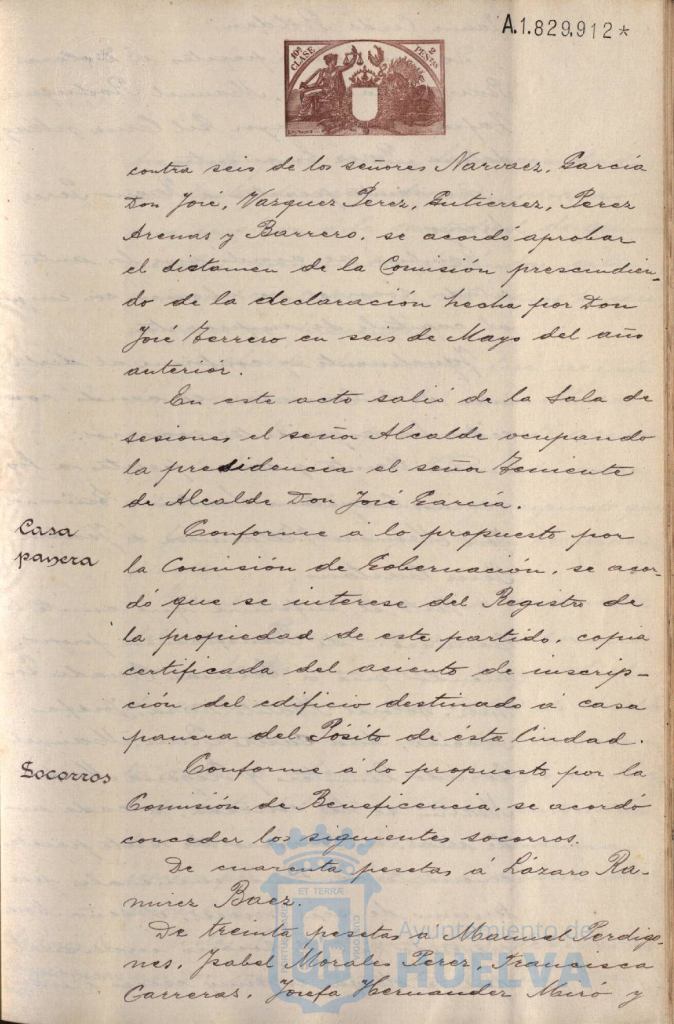 A.1.829.912*
10ª CLASE
2 PESETAS
contra seis de los señores Narvaez, García
Don José, Vazquez Perez, Gutierrez, Perez
Arenas y Barrero, se acordó aprobar
el dictamen de la Comisión prescindien-
do de la declaración hecha por Don
José Ferrero en seis de Mayo del año
anterior.
En este acto salió de la Sala de
sesiones el señor Alcalde ocupando
la presidencia el señor Teniente
de Alcalde Don José García.
Casa
panera
Conforme á lo propuesto por
la Comisión de Gobernación, se acor-
dó que se interese del Registro de
la propiedad de este partido, copia
certificada del asiento de inscrip-
ción del edificio destinado á casa
panera del Pósito de ésta Ciudad.
Socorros
Conforme á lo propuesto por la
Comisión de Beneficencia, se acordó
conceder los siguientes socorros.
De cuarenta pesetas á Lázaro Ra-
mirez Baez.
De treinta pesetas a Manuel Perdigo-
nes, Isabel Morales Perez, Francisca
Carreras, Josefa Hernander Miró y
ET TERRÆ
Ayuntamiento de
HUELVA